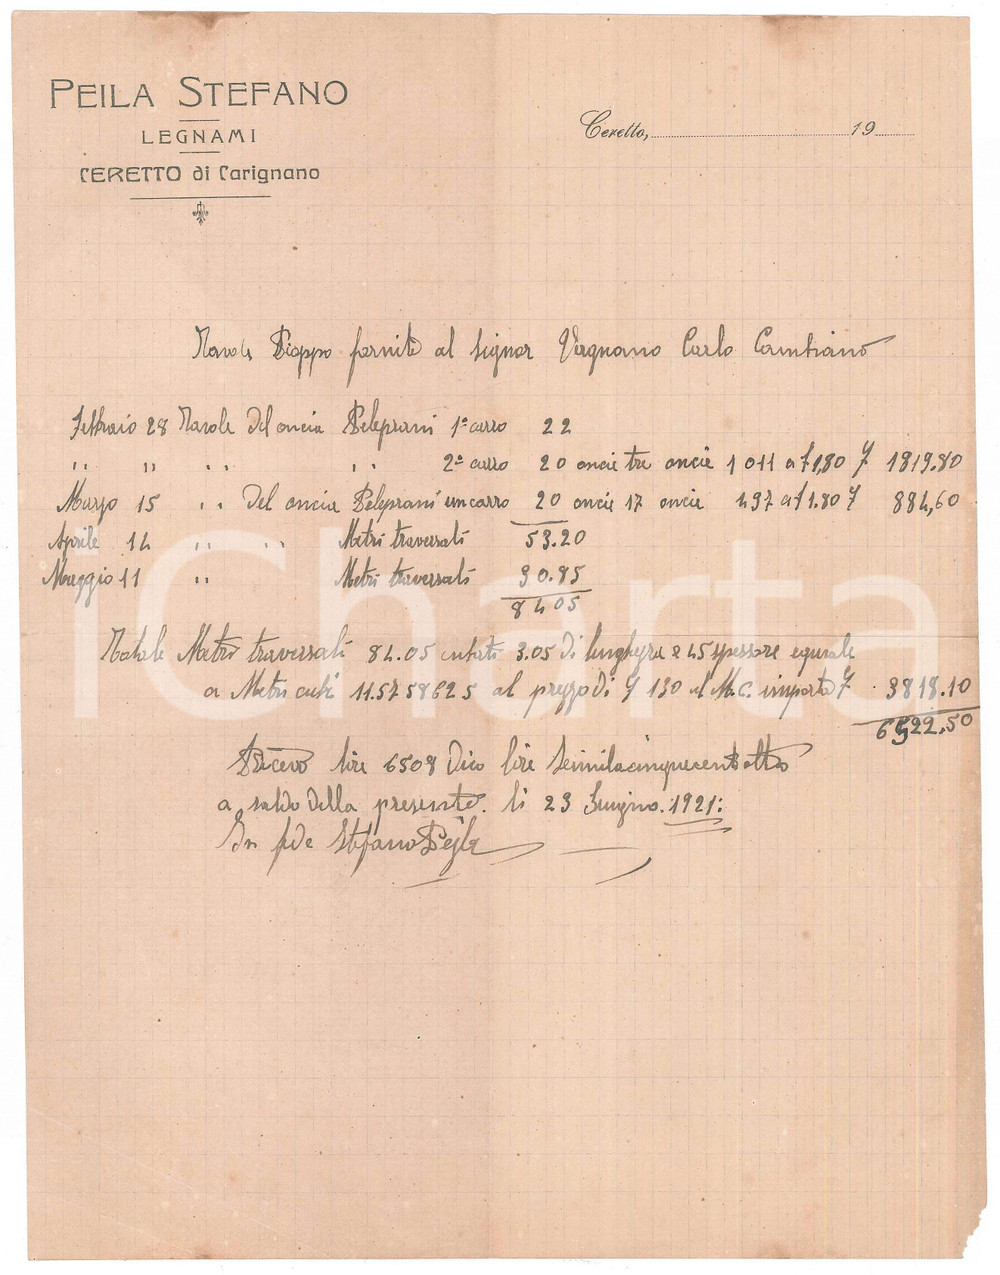 PEILA STEFANO
LEGNAMI
CERETTO di Carignano
Ceretto, 19
Tavole Pioppo fornite al signor Vergnano Carlo Cambiano
Febbraio 28 Tavole del oncia 1° carro 22
" " " " 2° carro 20 oncie tre oncie 1011 a £ 1,80 £ 1819.80
Marzo 15 " del oncia un carro 20 oncie 17 oncie 497 a £ 1.80 £ 884,60
Aprile 14 " " Metri traversati 53.20
Maggio 11 " Metri traversati 30.85
84.05
Totale Metri traversati 84.05 3.05 di lunghezza e 45 spessore equivale
a Metri cubi 11.5758625 al prezzo di £ 130 al M.C. importo £ 3818.10
6522,50
Ricevo lire 6508 Dico lire Seimilacinquecentootto
a saldo della presente. li 23 Giugno. 1921:
In fede Stefano Pejla
iCharta